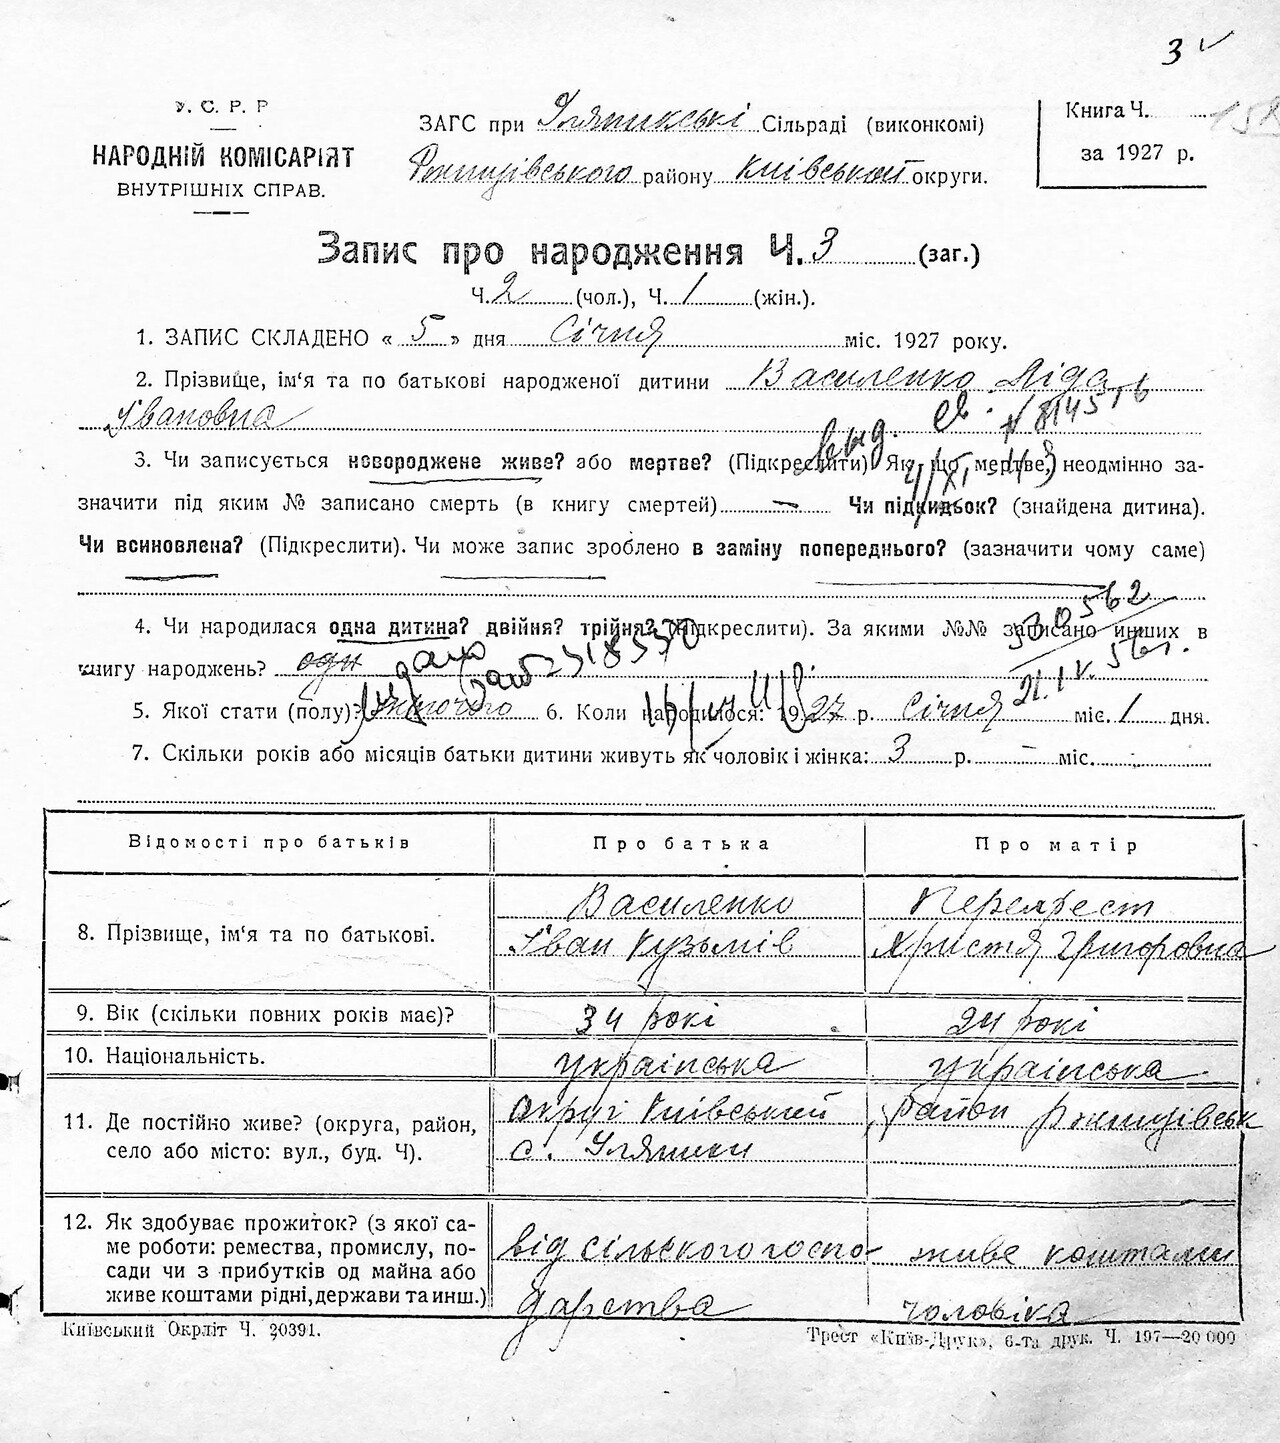 3
У. С. Р. Р
НАРОДНІЙ КОМІСАРІЯТ
ВНУТРІШНІХ СПРАВ.
ЗАГС при Уляникські Сільраді (виконкомі)
Ржищівського району Київськой округи.
Книга Ч. 158
за 1927 р.
Запис про народження Ч. 3 (заг.)
Ч. 2 (чол.), Ч. 1 (жін.).
1. ЗАПИС СКЛАДЕНО « 5 » дня Січня міс. 1927 року.
2. Прізвище, ім'я та по батькові народженої дитини Василенко Ліда
Івановна
выд. св.
3. Чи записується новороджене живе? або мертве? (Підкреслити) Як що мертве, неодмінно за-
значити під яким № записано смерть (в книгу смертей) — Чи підкидьок? (знайдена дитина).
Чи всиновлена? (Підкреслити). Чи може запис зроблено в заміну попереднього? (зазначити чому саме)
530562
4. Чи народилася одна дитина? двійня? трійня? (Підкреслити). За якими №№ записано инших в
книгу народжень?
21.IV.56г.
5. Якої стати (полу)? жиночого 6. Коли народилося: 1927 р. Січня міс. 1 дня.
7. Скільки років або місяців батьки дитини живуть як чоловік і жінка: 3 р. – міс.
Відомості про батьків Про батька Про матір
8. Прізвище, ім'я та по батькові. Василенко Іван Кузьмів Перехрест Христя Григоровна
9. Вік (скільки повних років має)? 34 рокі 24 рокі
10. Національність. українська українська
11. Де постійно живе? (округа, район, село або місто: вул., буд. Ч). округі Київський, район Ржищівськ
с. Уляники
12. Як здобуває прожиток? (з якої са-
ме роботи: ремества, промислу, по-
сади чи з прибутків од майна або
живе коштами рідні, держави та инш.)
від сільского госпо-
дарства
живе коштами
чоловіка
Київський Окрліт Ч. 20391.
Трест «Київ-Друк», 6-та друк. Ч. 197—20 000